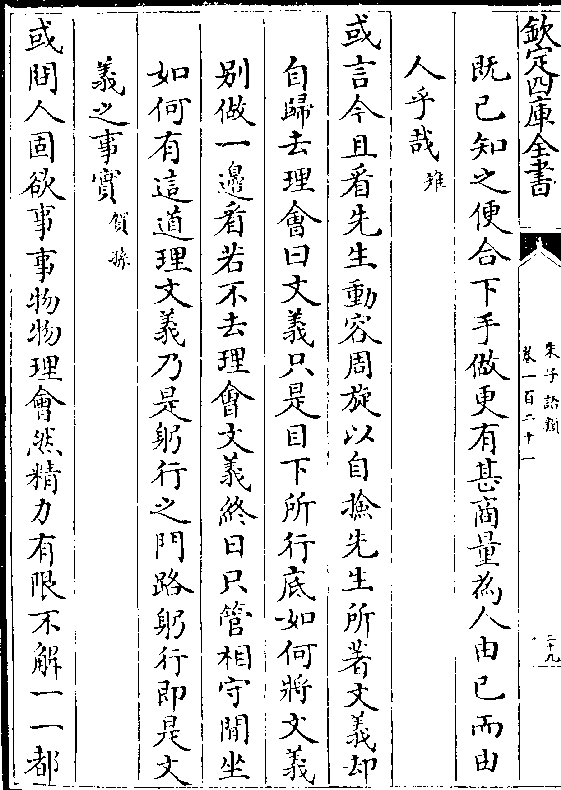 欽定四庫全書
朱子語類
卷一百二十一
二十九
既已知之便合下手做更有甚商量為人由已而由
人乎哉雉
或言今且看先生動容周旋以自撿先生所著文義却
自歸去理會曰文義只是目下所行底如何將文義
别做一邊看若不去理會文義終日只管相守閒坐
如何有這道理文義乃是躬行之門路躬行即是文
義之事實賀孫
或問人固欲事事物物理會然精力有限不解一一都